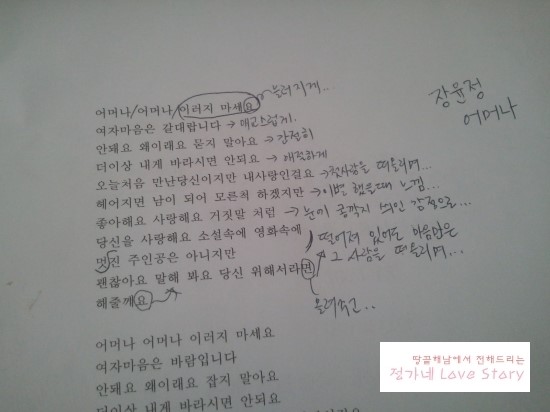 장윤정
어머나
늘러지게...
어머나/어머나/이러지 마세요
여자마음은 갈대랍니다 → 매고스럽게.
안돼요 왜이래요 묻지 말아요 → 간절히
더이상 내게 바라시면 안되요 → 애절하게
오늘처음 만난당신이지만 내사랑인걸요 → 첫사랑을 떠올리며...
헤어지면 남이 되어 모른척 하겠지만 → 이별 했을때 느낌...
좋아해요 사랑해요 거짓말 처럼 → 눈에 콩깍지 씌인 감정으로...
당신을 사랑해요 소설속에 영화속에
떨어져 있어도 마음만은
멋진 주인공은 아니지만
그 사람을 떠올리며...
괜찮아요 말해 봐요 당신 위해서라면
해줄께요
올려주고..
어머나 어머나 이러지 마세요
여자마음은 바람입니다
안돼요 왜이래요 잡지 말아요
더이상 내게 바라시면 안되요
땅끝해남에서 전해드리는
정가네 Love Story